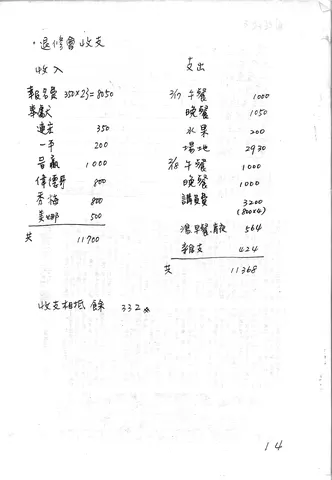 ·退修會收支
收入
報名費 350×23=8050
奉獻
連宏 350
一平 200
晉贏 1000
偉德哥 800
秀梅 800
美娜 500
共 11700
支出
2/17 午餐 1000
晚餐 1050
水果 200
場地 2930
2/18 午餐 1000
晚餐 1000
講員費 3200
(800×4)
早餐. 564
雜支 424
共 11368
收支相抵 餘 332
14